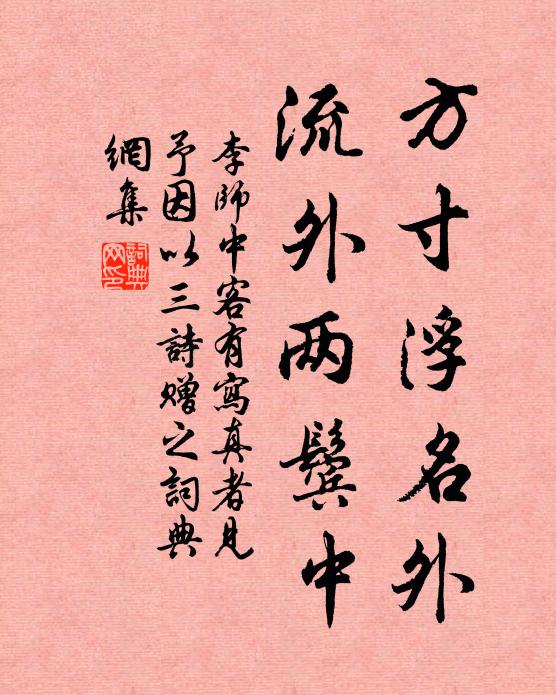 方寸浮名外
流外两鬓中
李師中客有寫真者見
予因以三詩赠之詞典
網集
詞典
网印